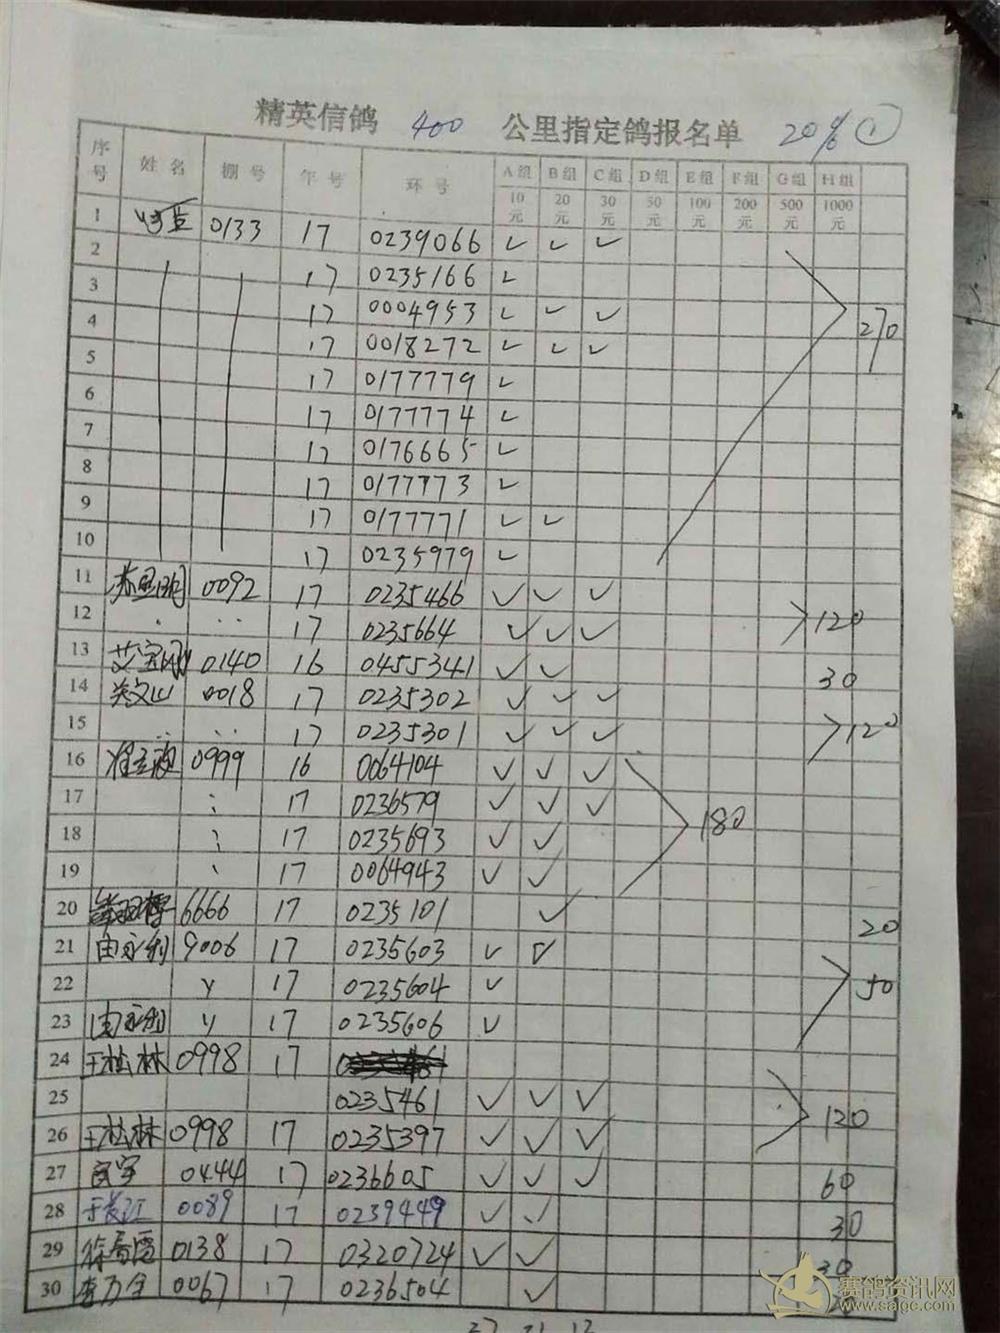 精英信鸽 400 公里指定鸽报名单 20% ①
序号 姓名 棚号 年号 环号 A组 B组 C组 D组 E组 F组 G组 H组
10元 20元 30元 50元 100元 200元 500元 1000元
1 0133 17 0239066 ✓ ✓ ✓
2 17 0235166 ✓
3 17 0004953 ✓ ✓ ✓
4 17 0018272 ✓ ✓ ✓ 270
5 17 0177779 ✓
6 17 0177774 ✓
7 17 0176665 ✓
8 17 0177773 ✓
9 17 0177771 ✓ ✓
10 17 0235979 ✓
11 0092 17 0235466 ✓ ✓ ✓
12 17 0235664 ✓ ✓ ✓ 120
13 0140 16 0455341 ✓ ✓ 30
14 关文山 0018 17 0235302 ✓ ✓ ✓
15 17 0235301 ✓ ✓ ✓ 120
16 0999 16 0064104 ✓ ✓ ✓
17 17 0236579 ✓ ✓ ✓
18 17 0235693 ✓ ✓ 180
19 17 0064943 ✓ ✓
20 6666 17 0235101 ✓ 20
21 由永利 9006 17 0235603 ✓ ✓
22 17 0235604 ✓ 50
23 由永利 17 0235606 ✓
24 王松林 0998 17
25 0235461 ✓ ✓ ✓
26 王松林 0998 17 0235397 ✓ ✓ ✓ 120
27 0444 17 0236605 ✓ ✓ ✓ 60
28 于长江 0089 17 0239449 ✓ ✓ 30
29 0138 17 0320724 ✓ ✓ 30
30 0067 17 0236504 ✓
赛鸽资讯网
www.saige.com